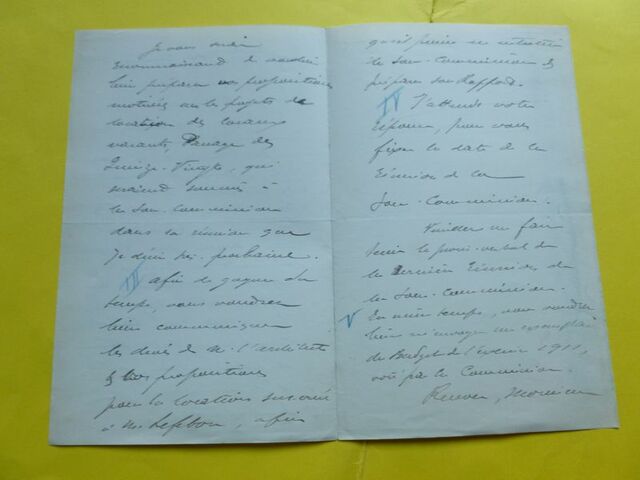 Je vous serai
reconnaissant de vouloir
bien préparer vos propositions
motivées sur les projets de
location des locaux
vacants, Passage des
Quinze-Vingts, qui
seraient soumis à
la Sous-commission
dans la réunion que
je désire très prochaine.
III afin de gagner du
temps, vous voudrez
bien communiquer
les devis de M. l'architecte
& vos propositions
pour les locations
à M. Lefebvre, afin
qu'il puisse
la Sous-Commission &
préparer son Rapport.
IV J'attends votre
réponse, pour vous
fixer la date de la
Réunion de la
Sous-Commission.
Veuillez me faire
tenir le procès-verbal de
la dernière Réunion de
la Sous-Commission.
V En même temps, vous voudrez
bien m'envoyer un exemplaire
du Budget de l'exercice 1911,
voté par la Commission.
Recevez, Monsieur